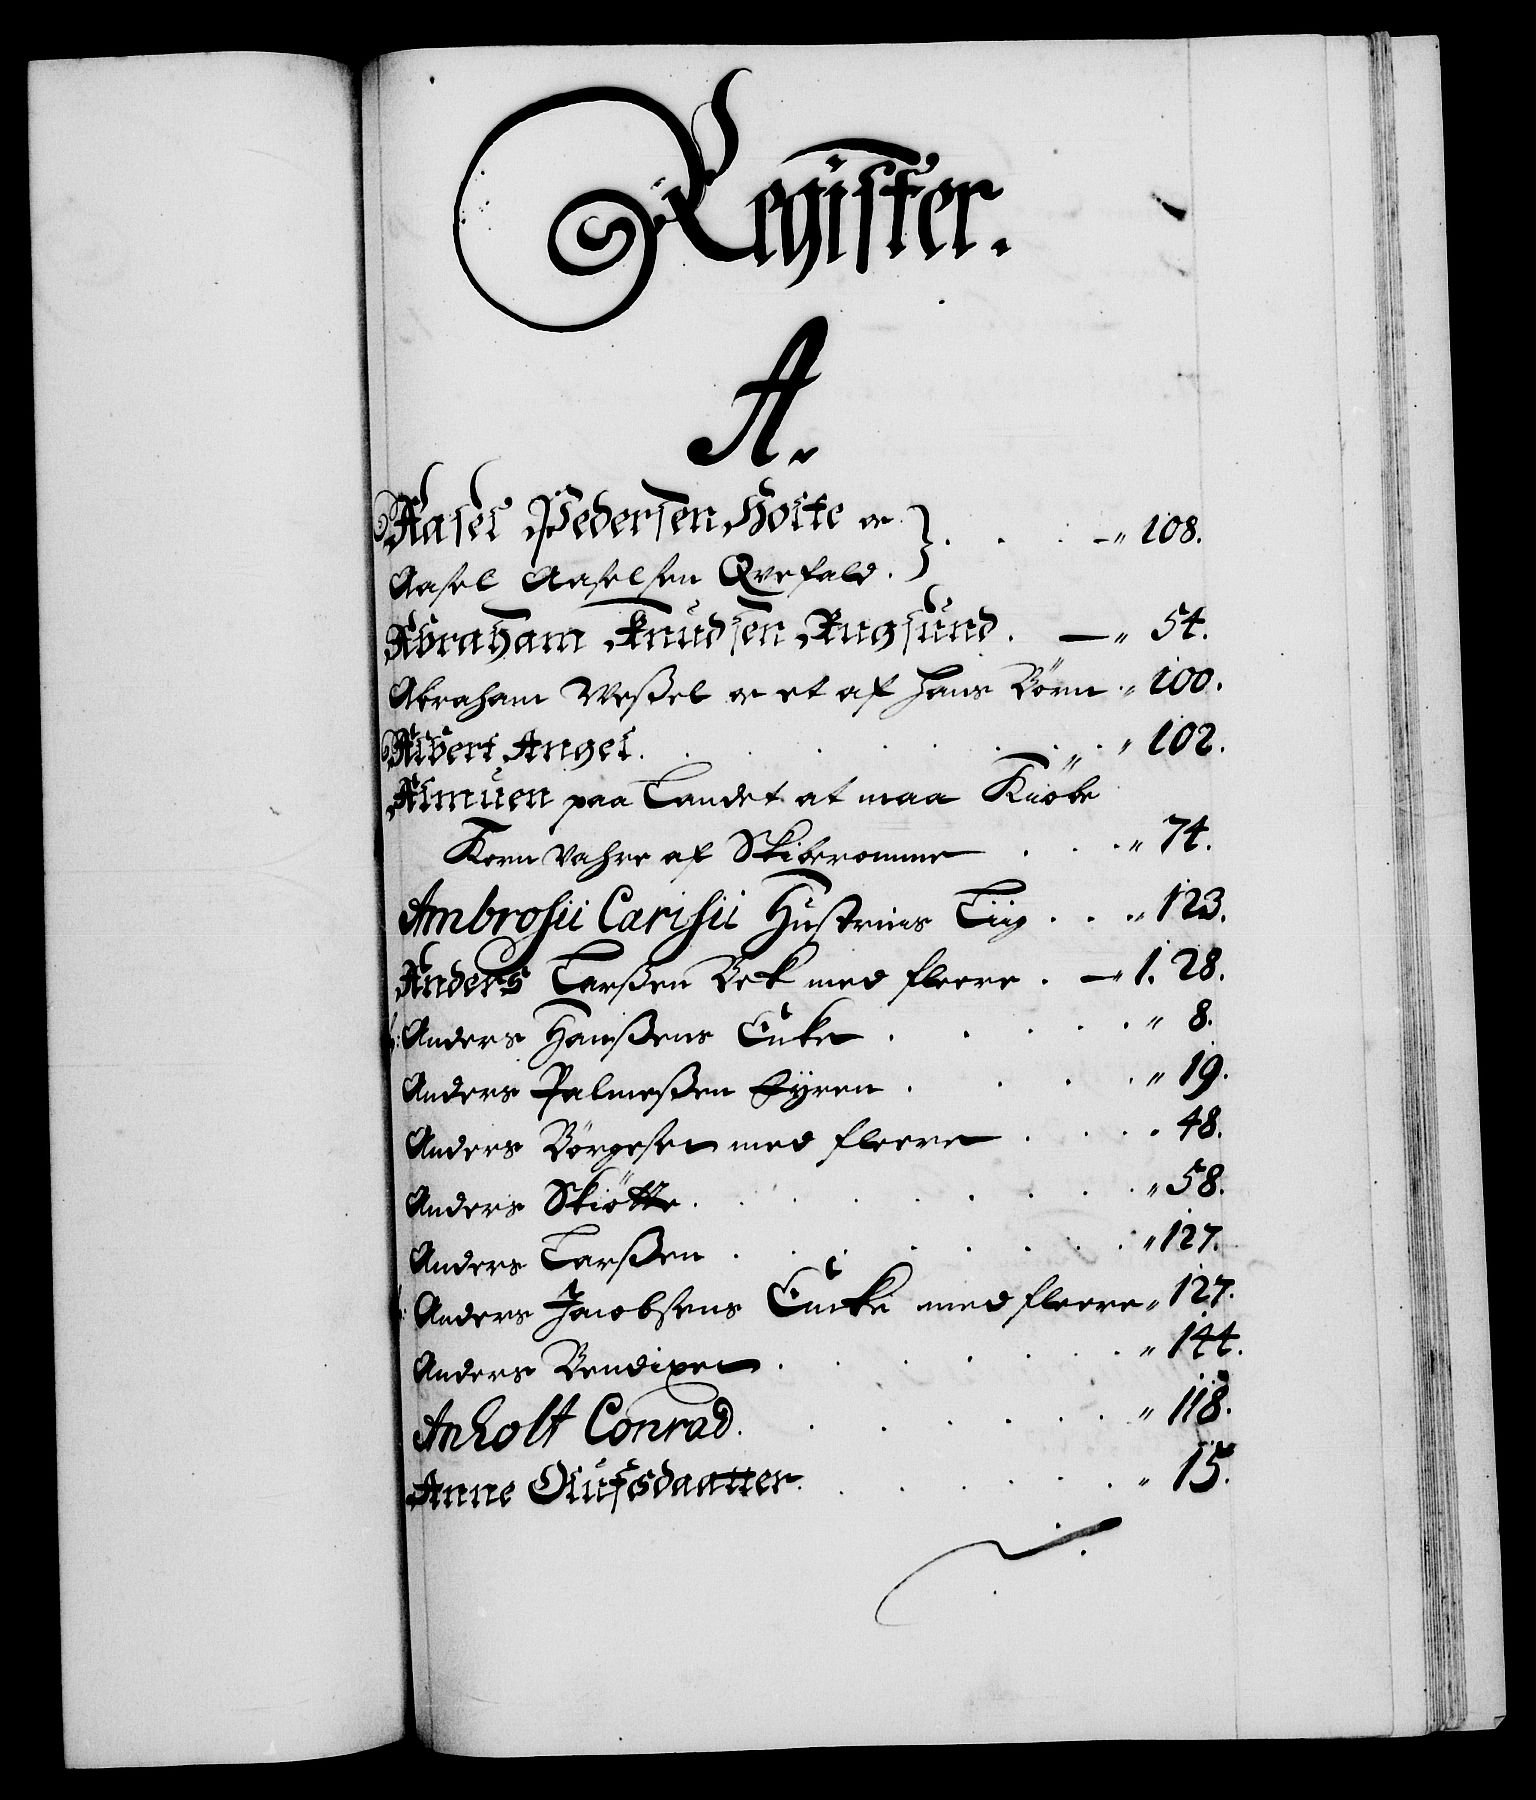 Register.
A.
Aasel Pedersen Holte oc } . . . -" 108.
Aasel Aaselsen Qvefald.
Abraham Knudsen Rugsund. —" 54.
Abraham Weßel oc et af hans Börn " 100.
Albert Angel. . . . . . . " 102.
Almuen paa Landet at maa Kiöbe
Korn Vahre af Skiberomme . . . " 74.
Ambrosii Carisii Hustrues Liig . . . " 123.
Anders Larßen Bek med fleere . —" 1. 28.
Anders Hanßens Encke . . . . " 8.
Anders Palmeßen . . . . " 19.
Anders Börgesen med fleere . . . . 48.
Anders Skiötte . . . . . . . " 58.
Anders Larßen . . . . . . . " 127.
Anders Jacobsens Encke med fleere " 127.
Anders Bendixen . . . . . . " 144.
Anholt Conrad. . . . . . " 118.
Anne Olufsdaatter. . . . . . " 15.